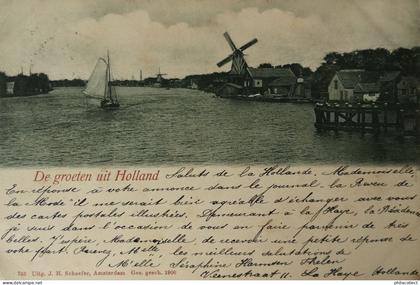 De groeten uit Holland
Saluts de la Hollande. Mademoiselle,
En réponse à votre annonce dans le journal la Revue de
la Mode il me serait bien agréable d'échanger avec vous
des cartes postales illustrées. Demeurant à la Haye, la Résidence,
je suis dans l'occasion de vous en faire parvenir de très
belles. J'espère, Mademoiselle, de recevoir une petite réponse de
votre part. Recevez, Mlle, les meilleurs salutations de
M'elle Séraphine Harmsen
755 Uitg. J. H. Schaefer, Amsterdam Gen. gesch. 1900
Veenestraat 11. La Haye Holland
delcampe.net